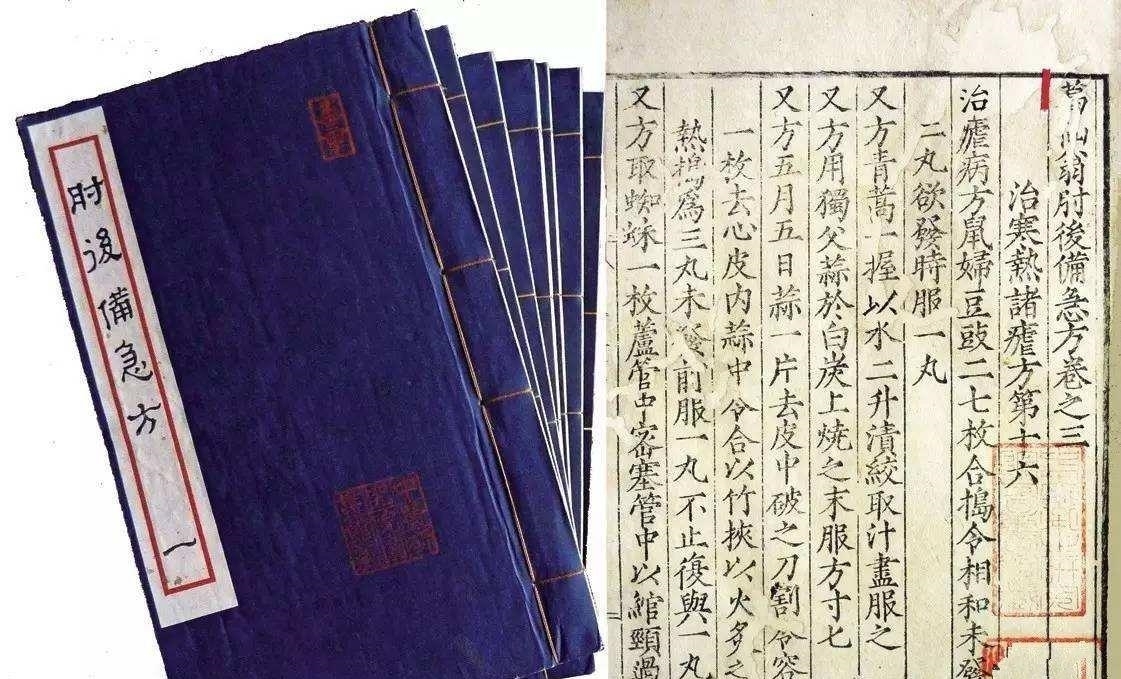 肘後備急方 一
葛仙翁肘後備急方卷之三
治寒熱諸瘧方第十六
治瘧病方鼠婦豆豉二七枚合搗令相和未發
二丸欲發時服一丸
又方青蒿一握以水二升漬絞取汁盡服之
又方用獨父蒜於白炭上燒之末服方寸匕
又方五月五日蒜一片去皮中破之刀割令容
一枚去心皮内蒜中令合以竹挾以火炙之
熱搗爲三丸未發前服一丸不止復與一丸
又方取蜘蛛一枚蘆管中密塞管中以綰頸過